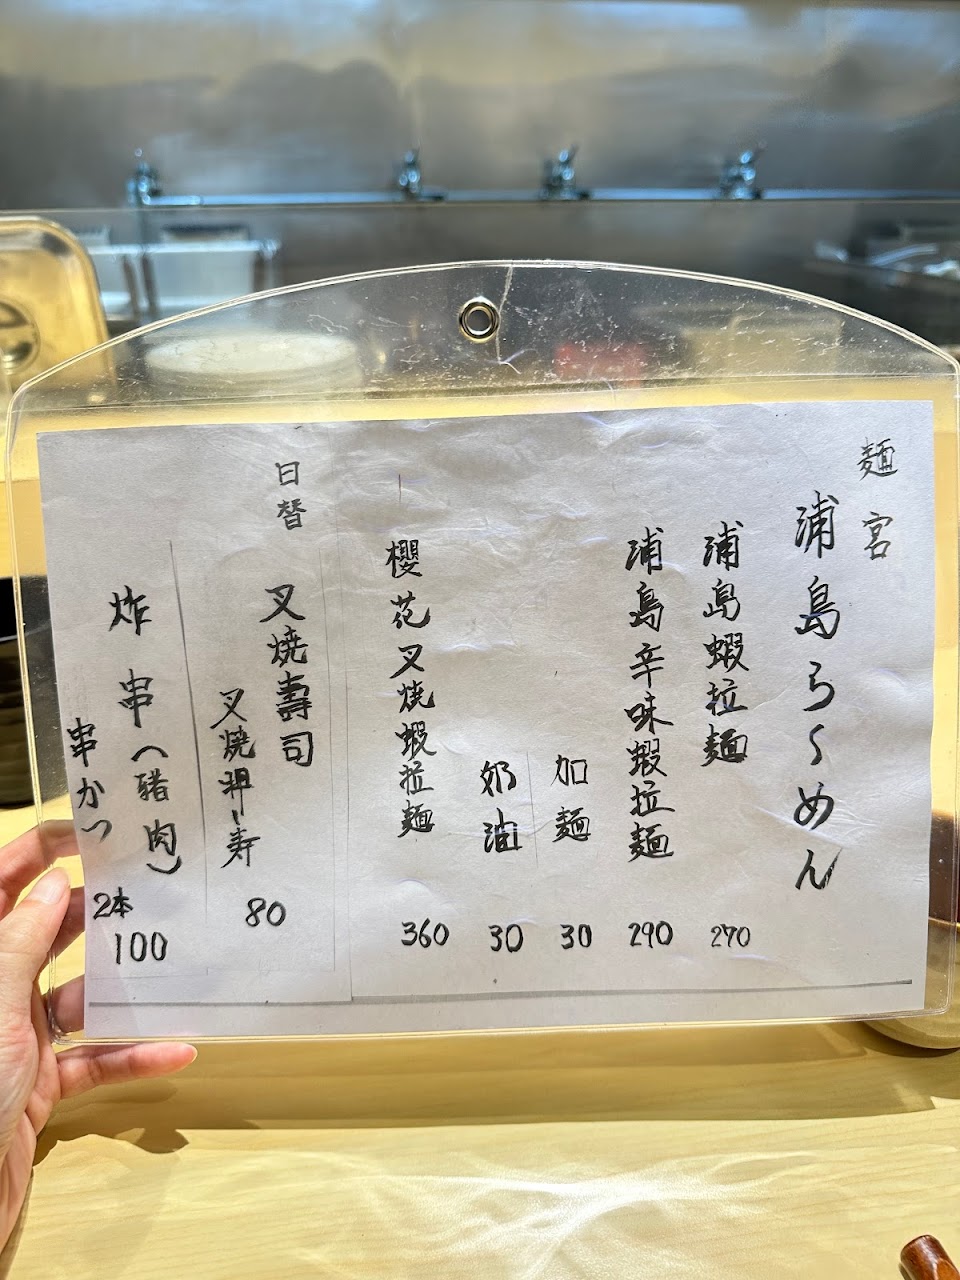 麺宮
浦島らーめん
浦島蝦拉麺 270
浦島辛味蝦拉麺 290
加麺 30
奶油 30
櫻花叉燒蝦拉麺 360
日替
叉燒壽司
叉焼押し寿 80
炸串(豬肉)
串かつ
2本
100